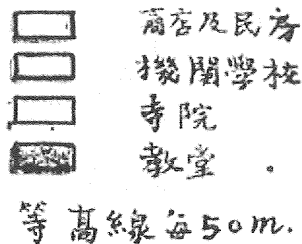 商店及民房
機関學校
寺院
教堂
等高線每50m.